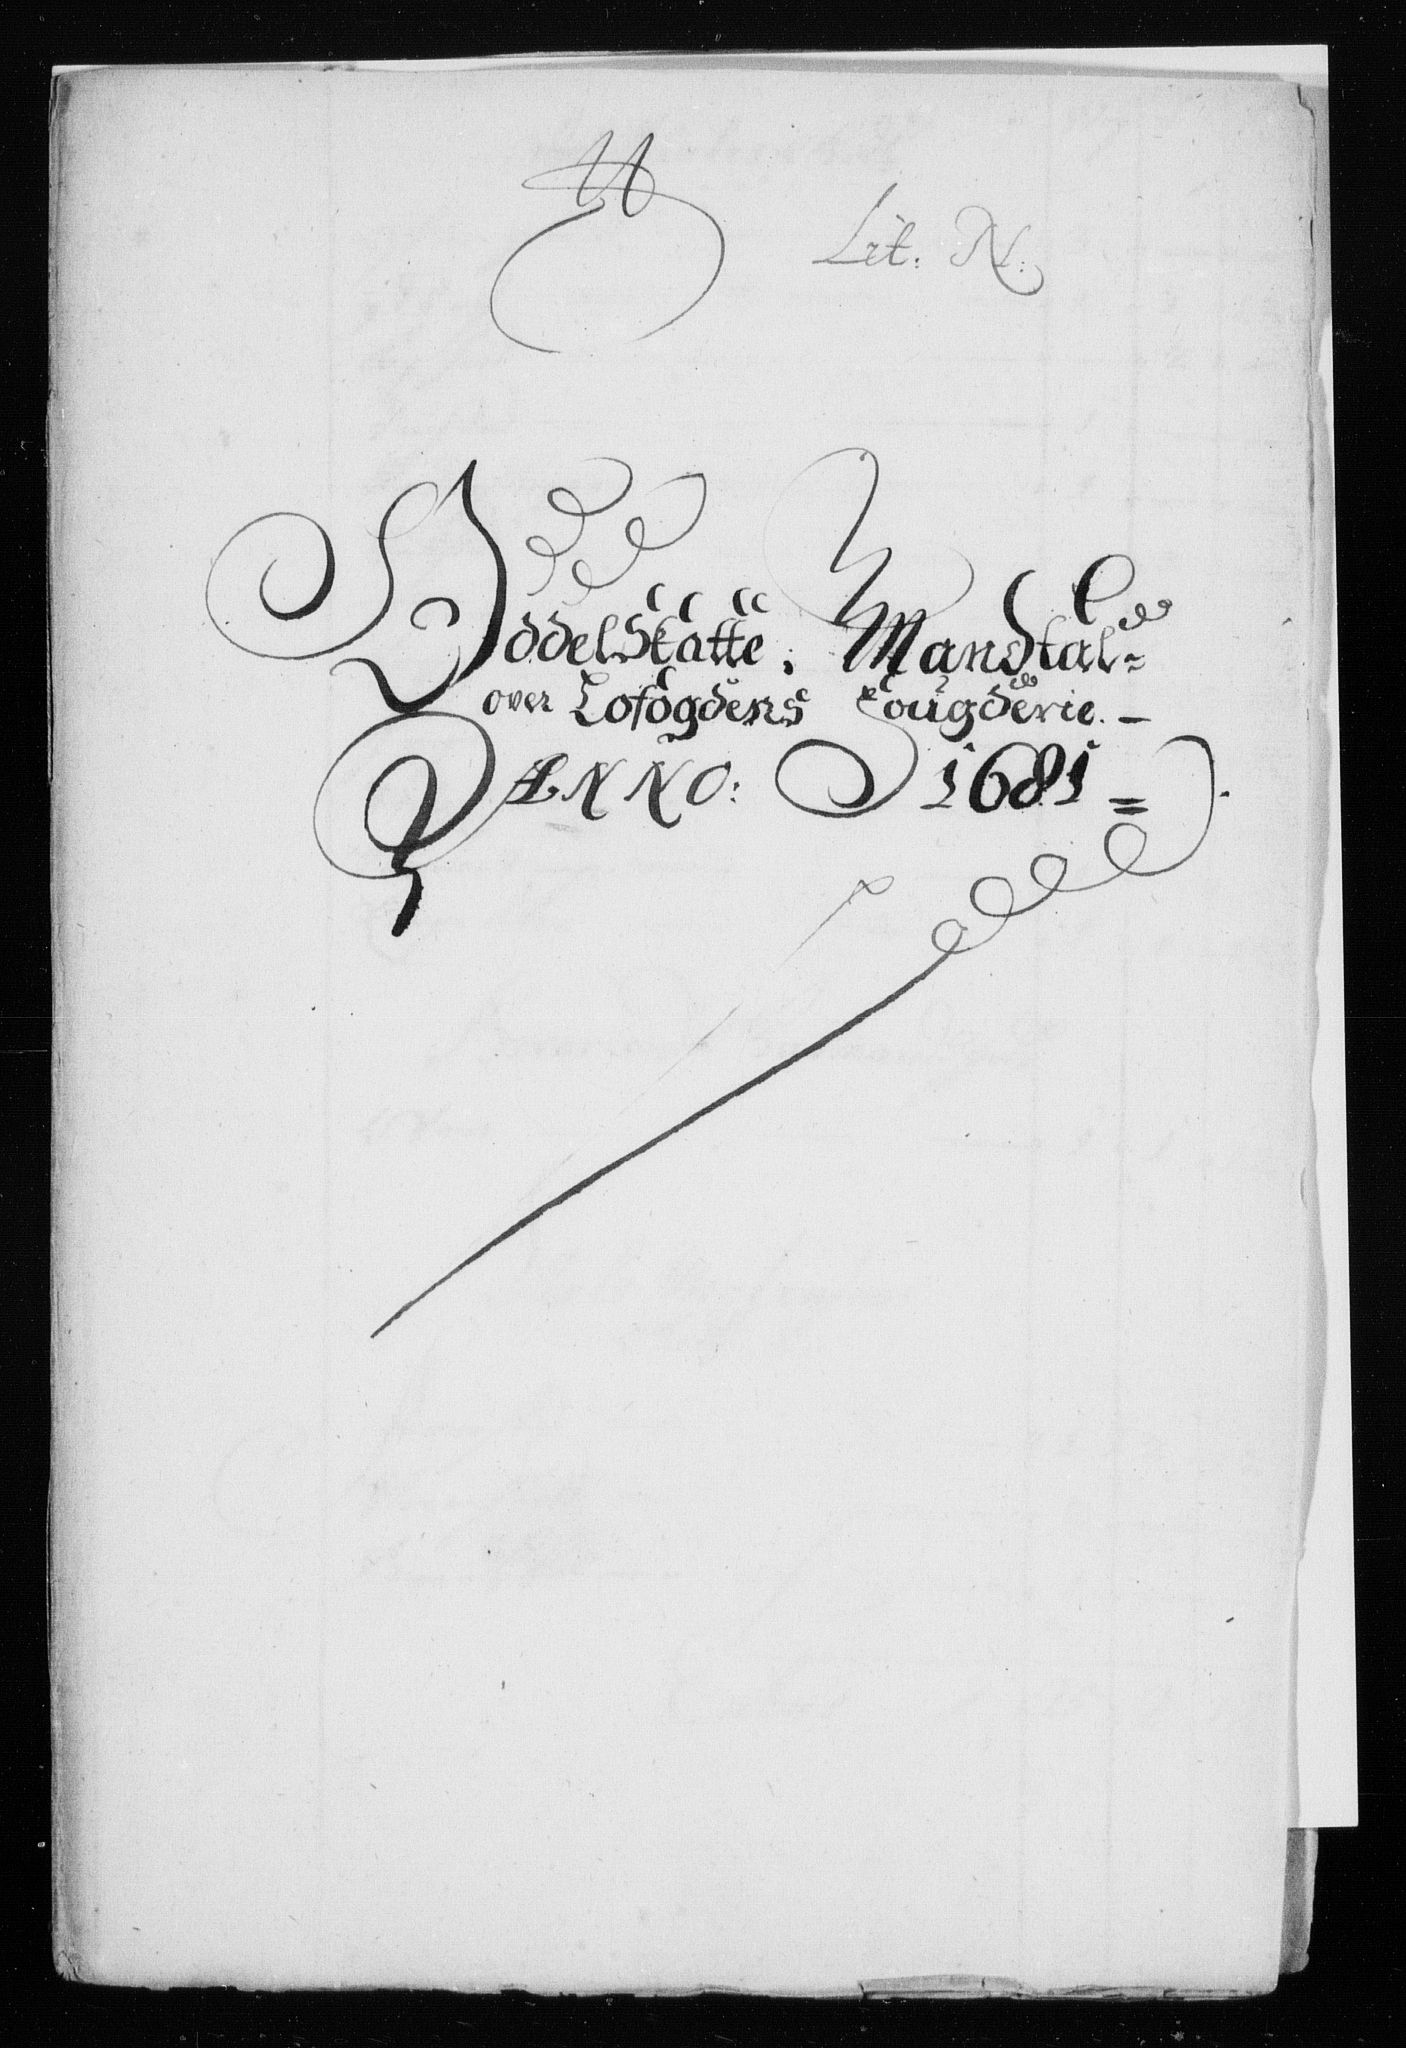 Lit: N:
Oddel Skatte. Mandtal=
over Lofogdens Fougderie. —
ANNO: 1681 =